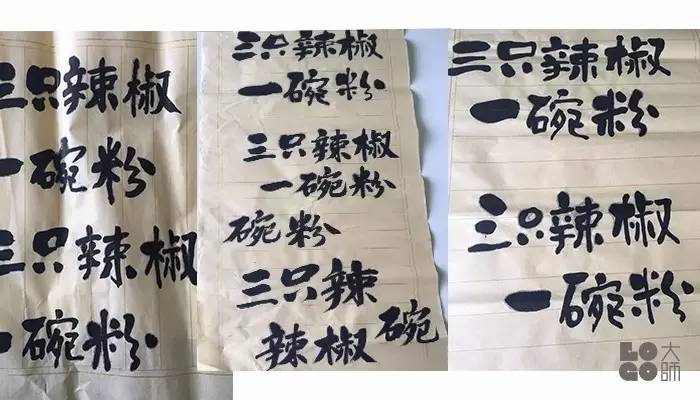 三只辣椒
一碗粉
三只辣椒
一碗粉
三只辣椒
一碗粉
三只辣椒
一碗粉
碗粉
三只辣
辣椒碗
三只辣椒
一碗粉
三只辣椒
一碗粉
LOGO大師